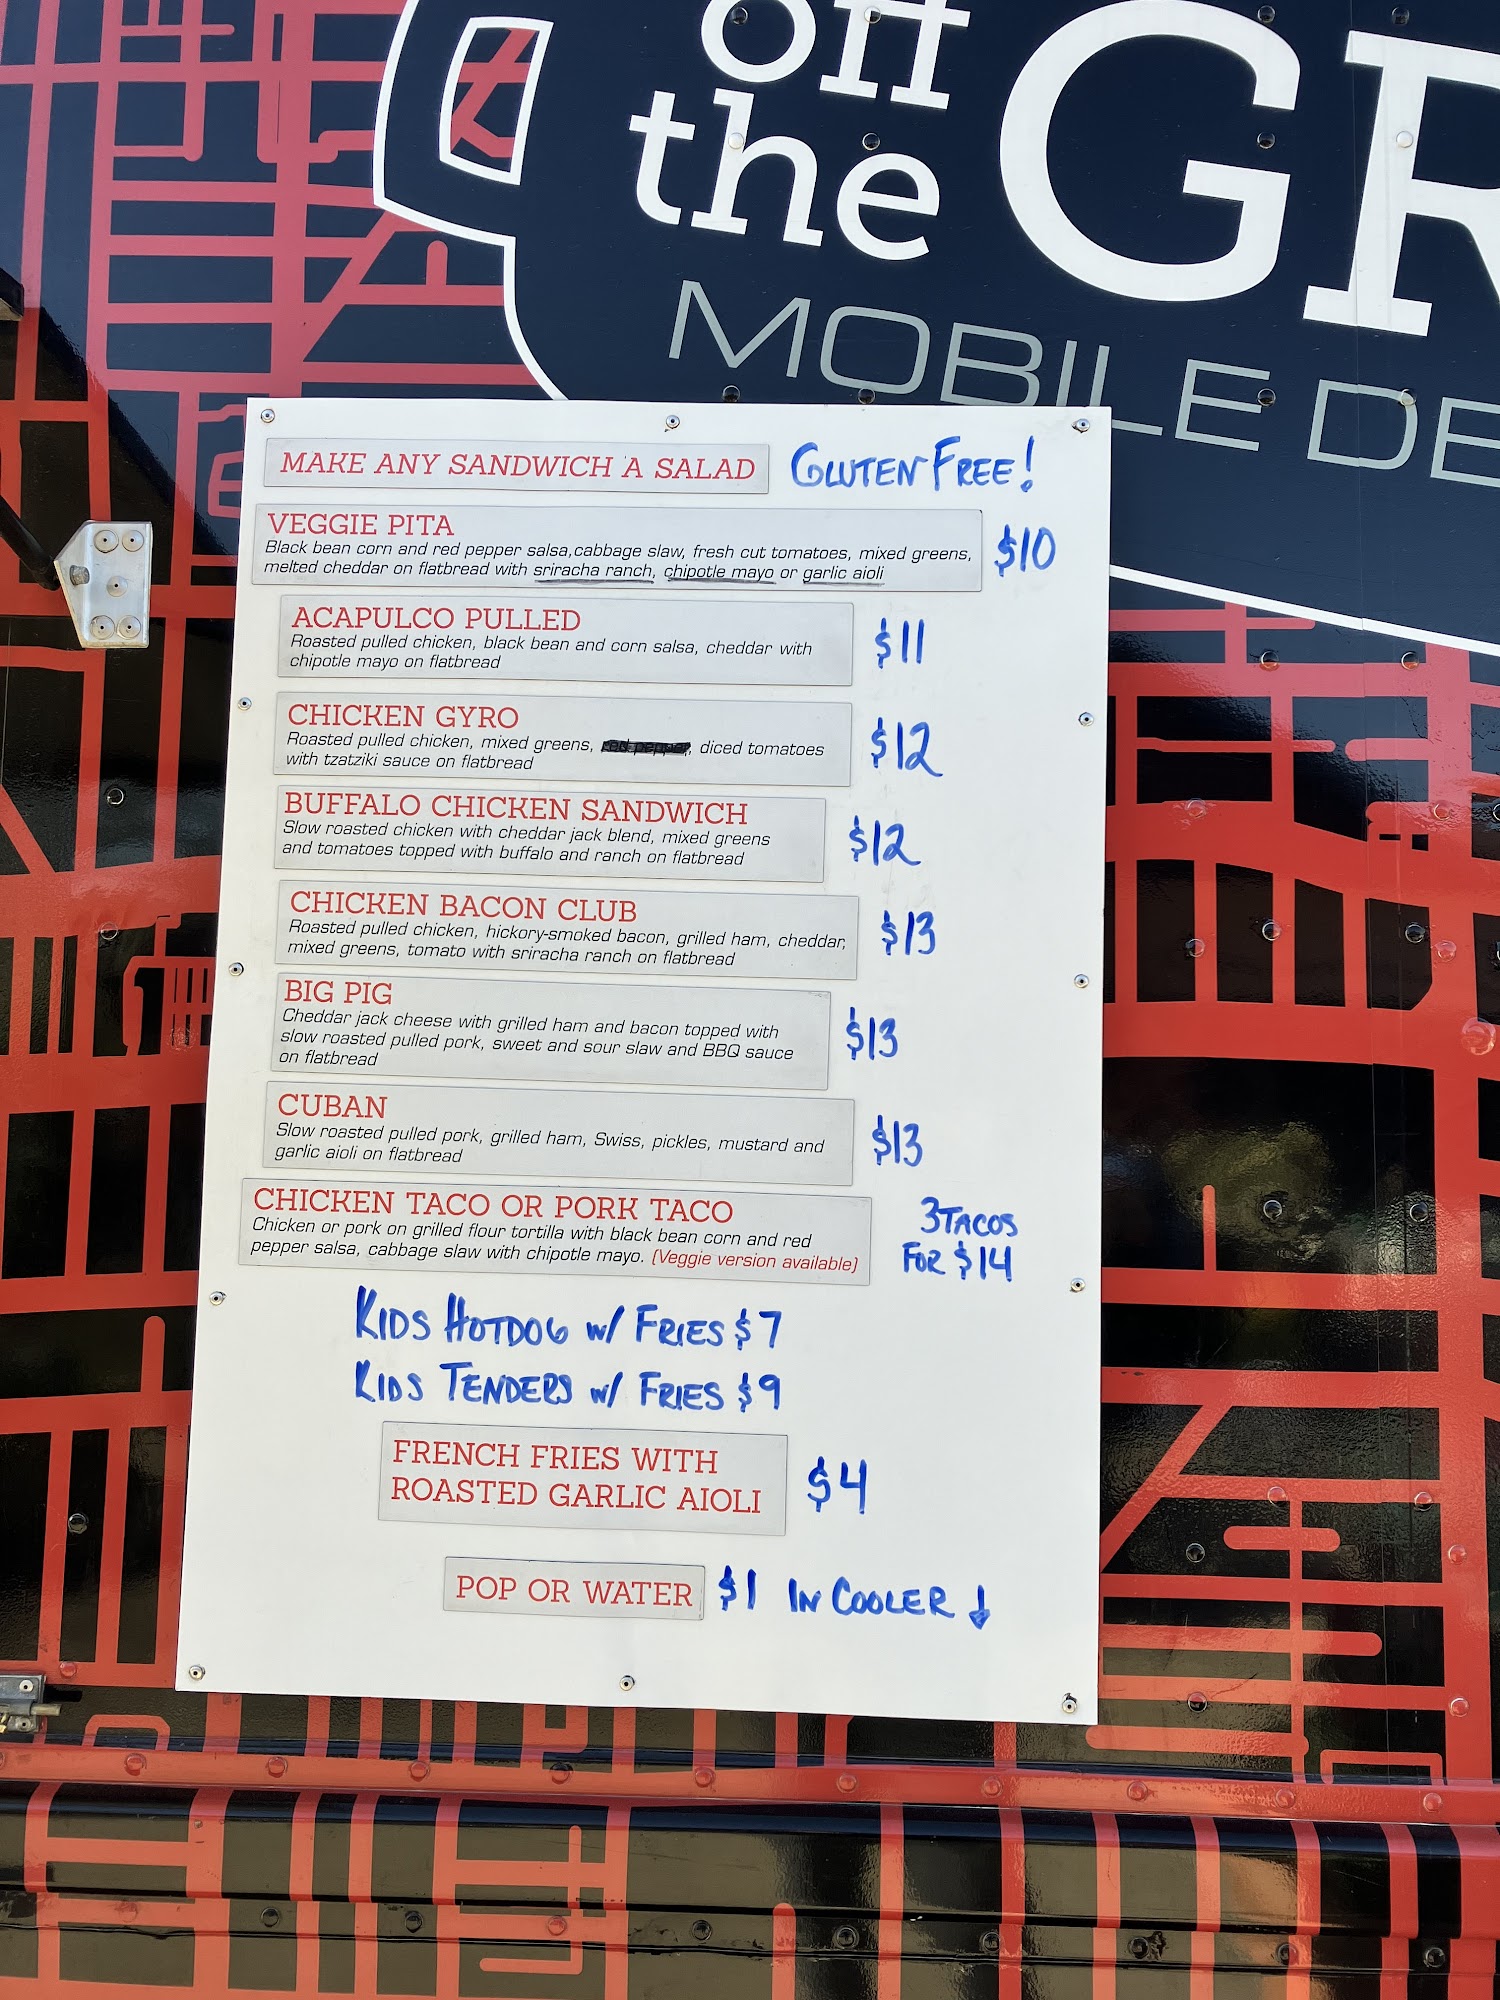 off
the GR
MOBILE DE
MAKE ANY SANDWICH A SALAD GLUTEN FREE!
VEGGIE PITA
Black bean corn and red pepper salsa,cabbage slaw, fresh cut tomatoes, mixed greens,
melted cheddar on flatbread with sriracha ranch, chipotle mayo or garlic aioli
$10
ACAPULCO PULLED
Roasted pulled chicken, black bean and corn salsa, cheddar with
chipotle mayo on flatbread
$11
CHICKEN GYRO
Roasted pulled chicken, mixed greens, red pepper, diced tomatoes
with tzatziki sauce on flatbread
$12
BUFFALO CHICKEN SANDWICH
Slow roasted chicken with cheddar jack blend, mixed greens
and tomatoes topped with buffalo and ranch on flatbread
$12
CHICKEN BACON CLUB
Roasted pulled chicken, hickory-smoked bacon, grilled ham, cheddar,
mixed greens, tomato with sriracha ranch on flatbread
$13
BIG PIG
Cheddar jack cheese with grilled ham and bacon topped with
slow roasted pulled pork, sweet and sour slaw and BBQ sauce
on flatbread
$13
CUBAN
Slow roasted pulled pork, grilled ham, Swiss, pickles, mustard and
garlic aioli on flatbread
$13
CHICKEN TACO OR PORK TACO
Chicken or pork on grilled flour tortilla with black bean corn and red
pepper salsa, cabbage slaw with chipotle mayo. (Veggie version available)
3 TACOS
FOR $14
KIDS HOTDOG W/ FRIES $7
KIDS TENDERS W/ FRIES $9
FRENCH FRIES WITH
ROASTED GARLIC AIOLI
$4
POP OR WATER $1 IN COOLER ↓